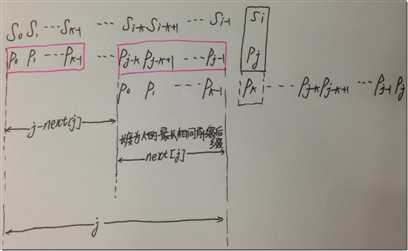 S₀ S₁ ··· Sₖ₋₁ ··· Sᵢ₋ₖ Sᵢ₋ₖ₊₁ ··· Sᵢ₋₁ Sᵢ
P₀ P₁ ··· Pₖ₋₁ ··· Pⱼ₋ₖ Pⱼ₋ₖ₊₁ ··· Pⱼ₋₁ Pⱼ
P₀ P₁ ··· Pₖ₋₁ Pₖ ··· Pⱼ₋ₖ Pⱼ₋ₖ₊₁ ··· Pⱼ₋₁ Pⱼ
j-next[j]
长度为k的最长相同前缀后缀
next[j]
j